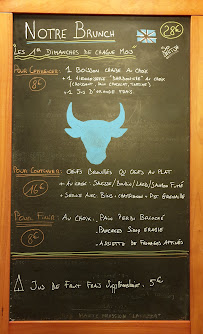 NOTRE BRUNCH
28€
LES 1ers DIMANCHES DE CHAQUE MOIS
POUR COMMENCER: + 1 BOISSON CHAUDE AU CHOIX
8€
+ 1 VIENNOISERIE GOURMANDE AU CHOIX
(CROISSANT, PAIN CHOCOLAT, TARTINE)
+ 1 JUS D'ORANGE FRAIS
POUR CONTINUER: OEUFS BROUILLÉS OU OEUFS AU PLAT
16€
+ AU CHOIX: SAUCISSE/BOUDIN/LARD/SAUMON FUMÉ
+ SERVIE AVEC
POUR FINIR: AU CHOIX: PAIN PERDU BRIOCHÉ
8€
PANCAKES SIROP ERABLE
ASSIETTE DE FROMAGES AFFINÉS
JUS DE FRUIT FRAIS SUPPLÉMENTAIRE: 5€